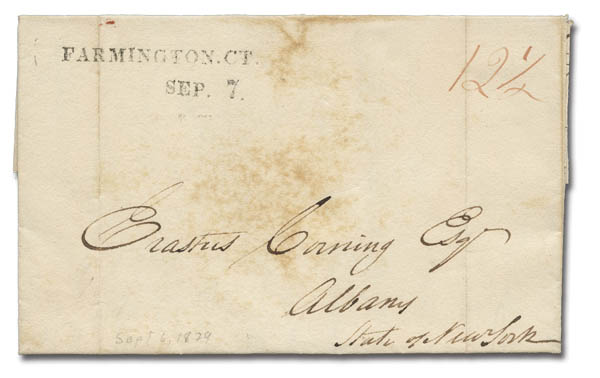 FARMINGTON.CT.
SEP. 7.
12½
Erastus Corning Esqr
Albany
State of New York
Sept 6, 1829